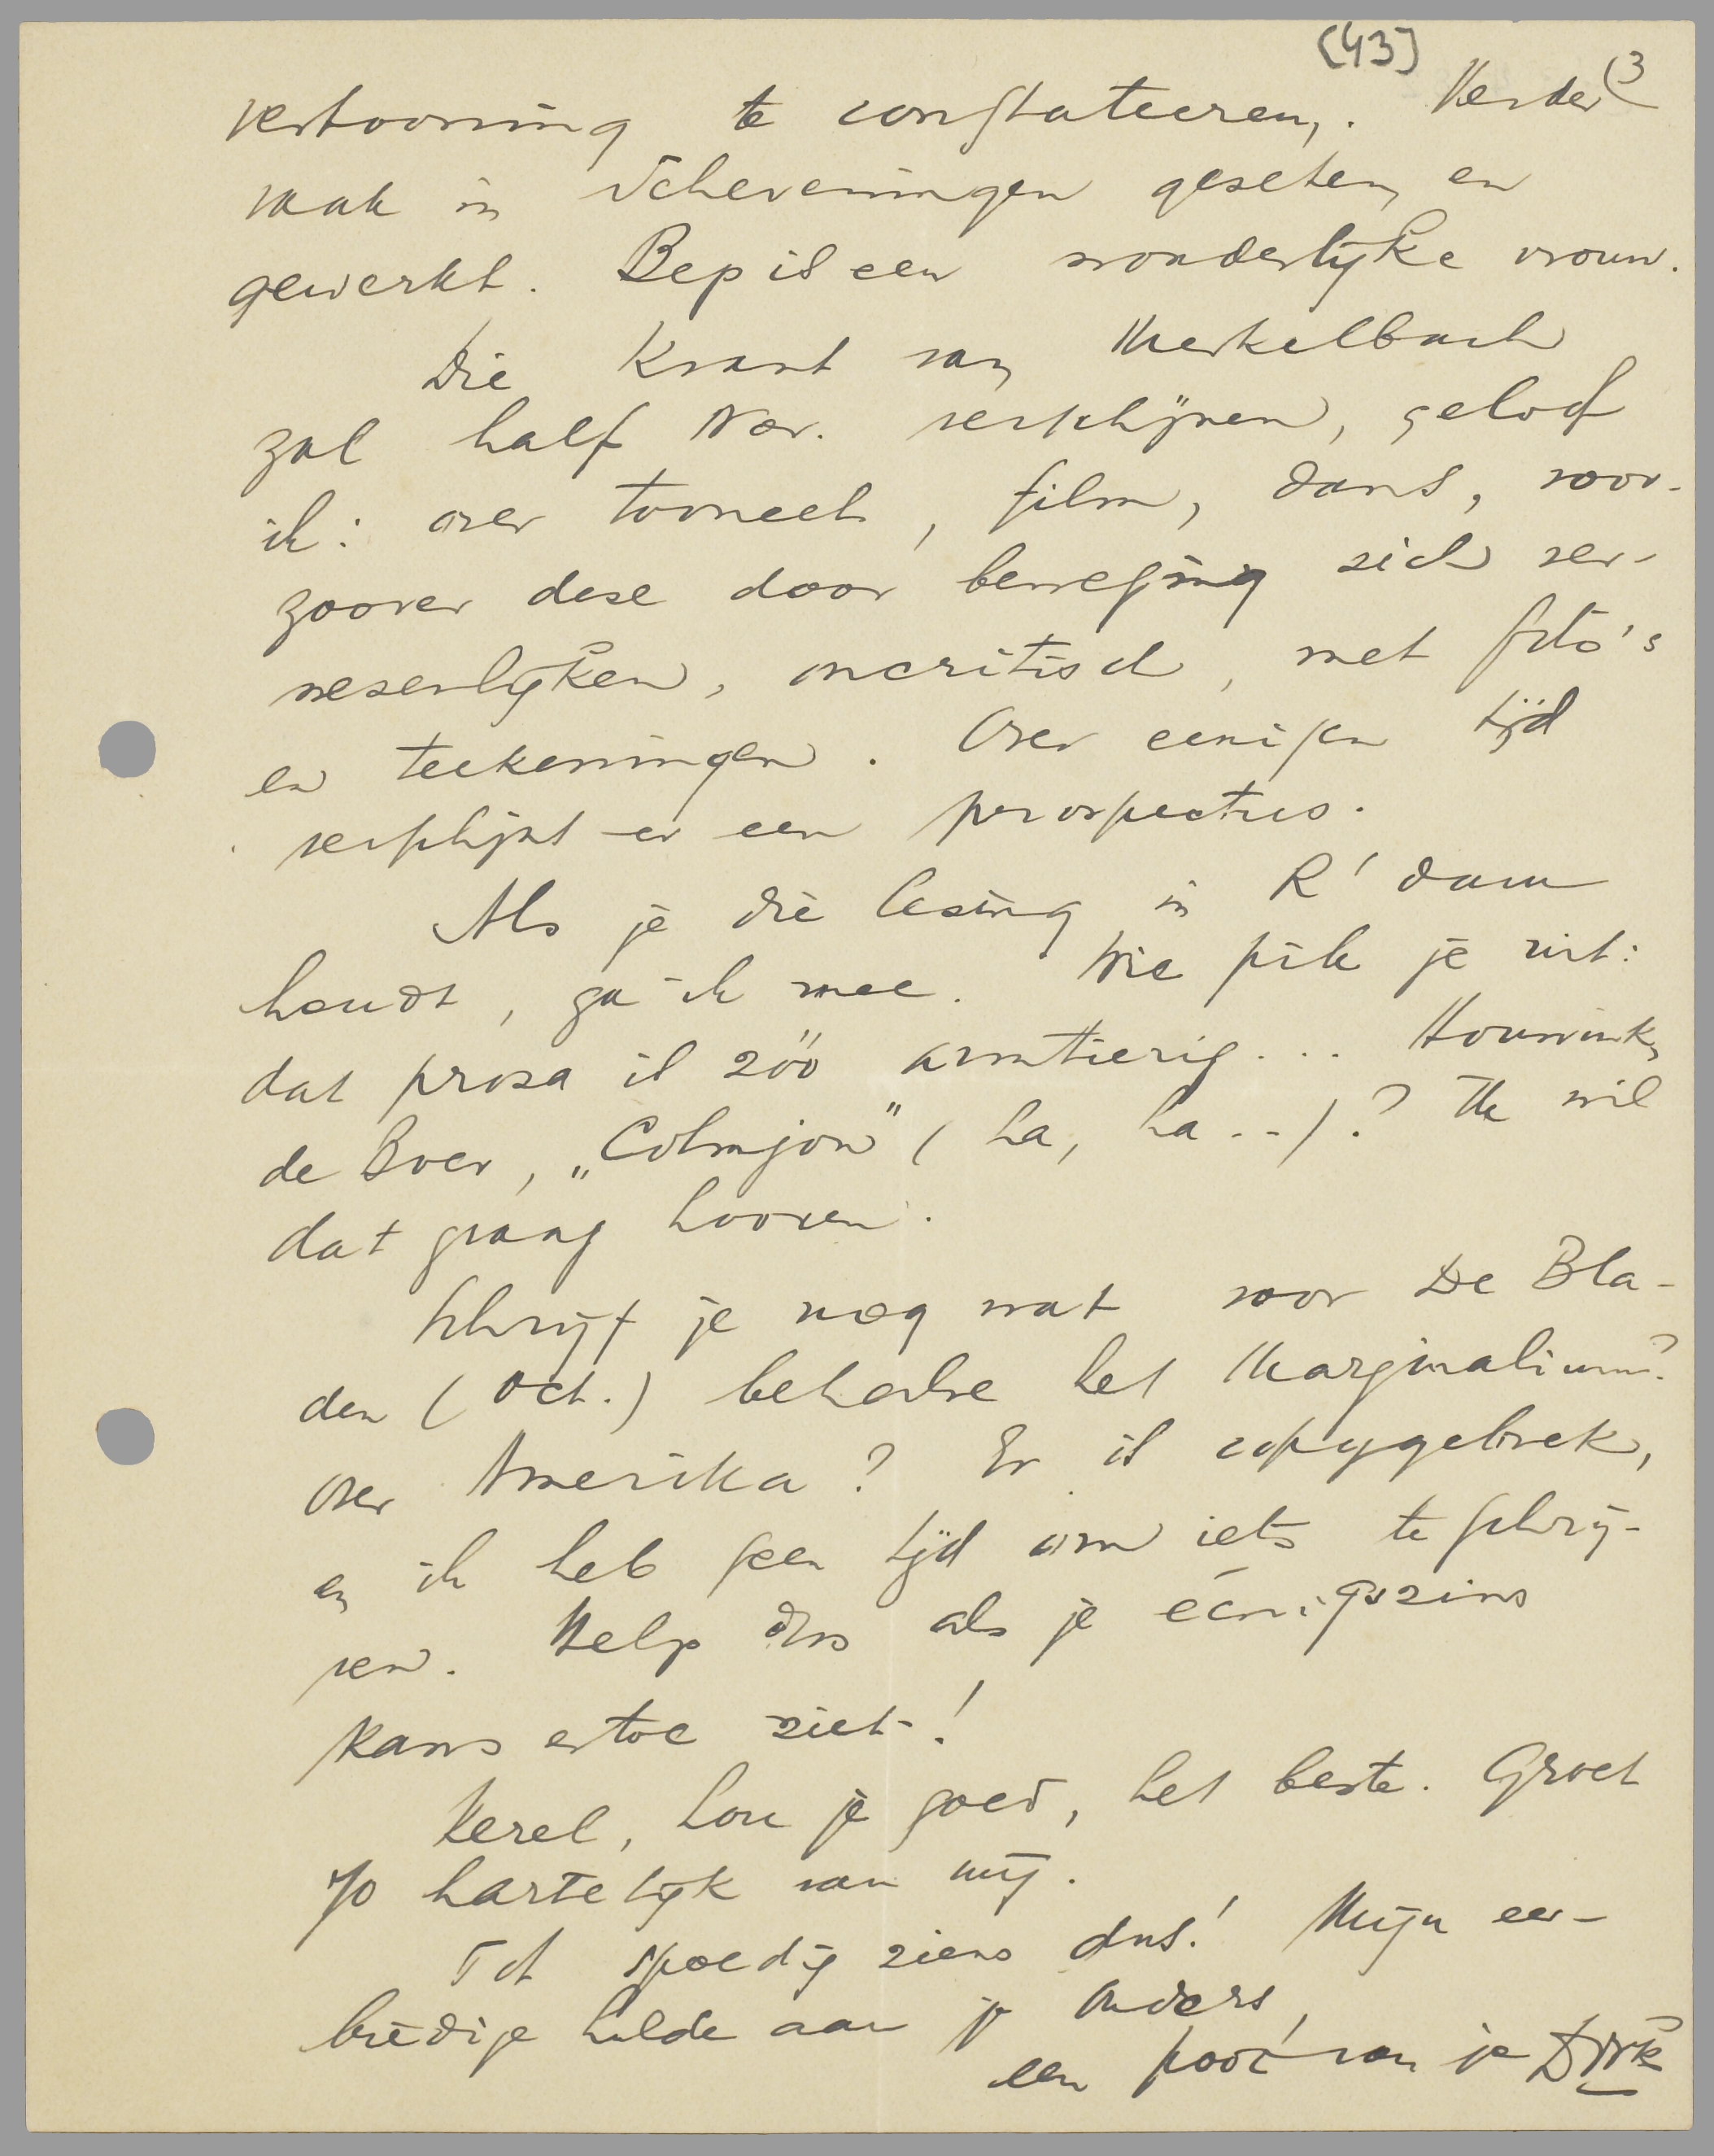 [43]
3
vertooning te constateeren,. Verder
vaak in Scheveningen gezeten en
gewerkt. Bep is een wonderlijke vrouw.
Die Krant van Merkelbach
zal half Nov. verschijnen, geloof
ik: over tooneel, film, dans, voor-
zoover deze door beweging zich ver-
wezenlijken, oncritisch, met foto's
en teekeningen. Over eenigen tijd
verschijnt er een prospectus.
Als je die lezing in R'dam
houdt, ga ik mee. Wie pik je uit:
dat proza is zóó armtierig... Houwink,
de Boer, „Colmjon” (ha, ha..)? Ik wil
dat graag hooren.
Schrijf je nog wat voor De Bla-
den (Oct.) behalve het Marginalium?
over Amerika? Er is copygebrek,
en ik heb geen tijd om iets te schrij-
ven. Help dus als je éénigszins
kans ertoe ziet!
Kerel, hou je goed, het beste. Groet
Jo hartelijk van mij.
Tot spoedig ziens dus! Mijn eer-
biedige hulde aan je ouders,
een poot van je Dirk